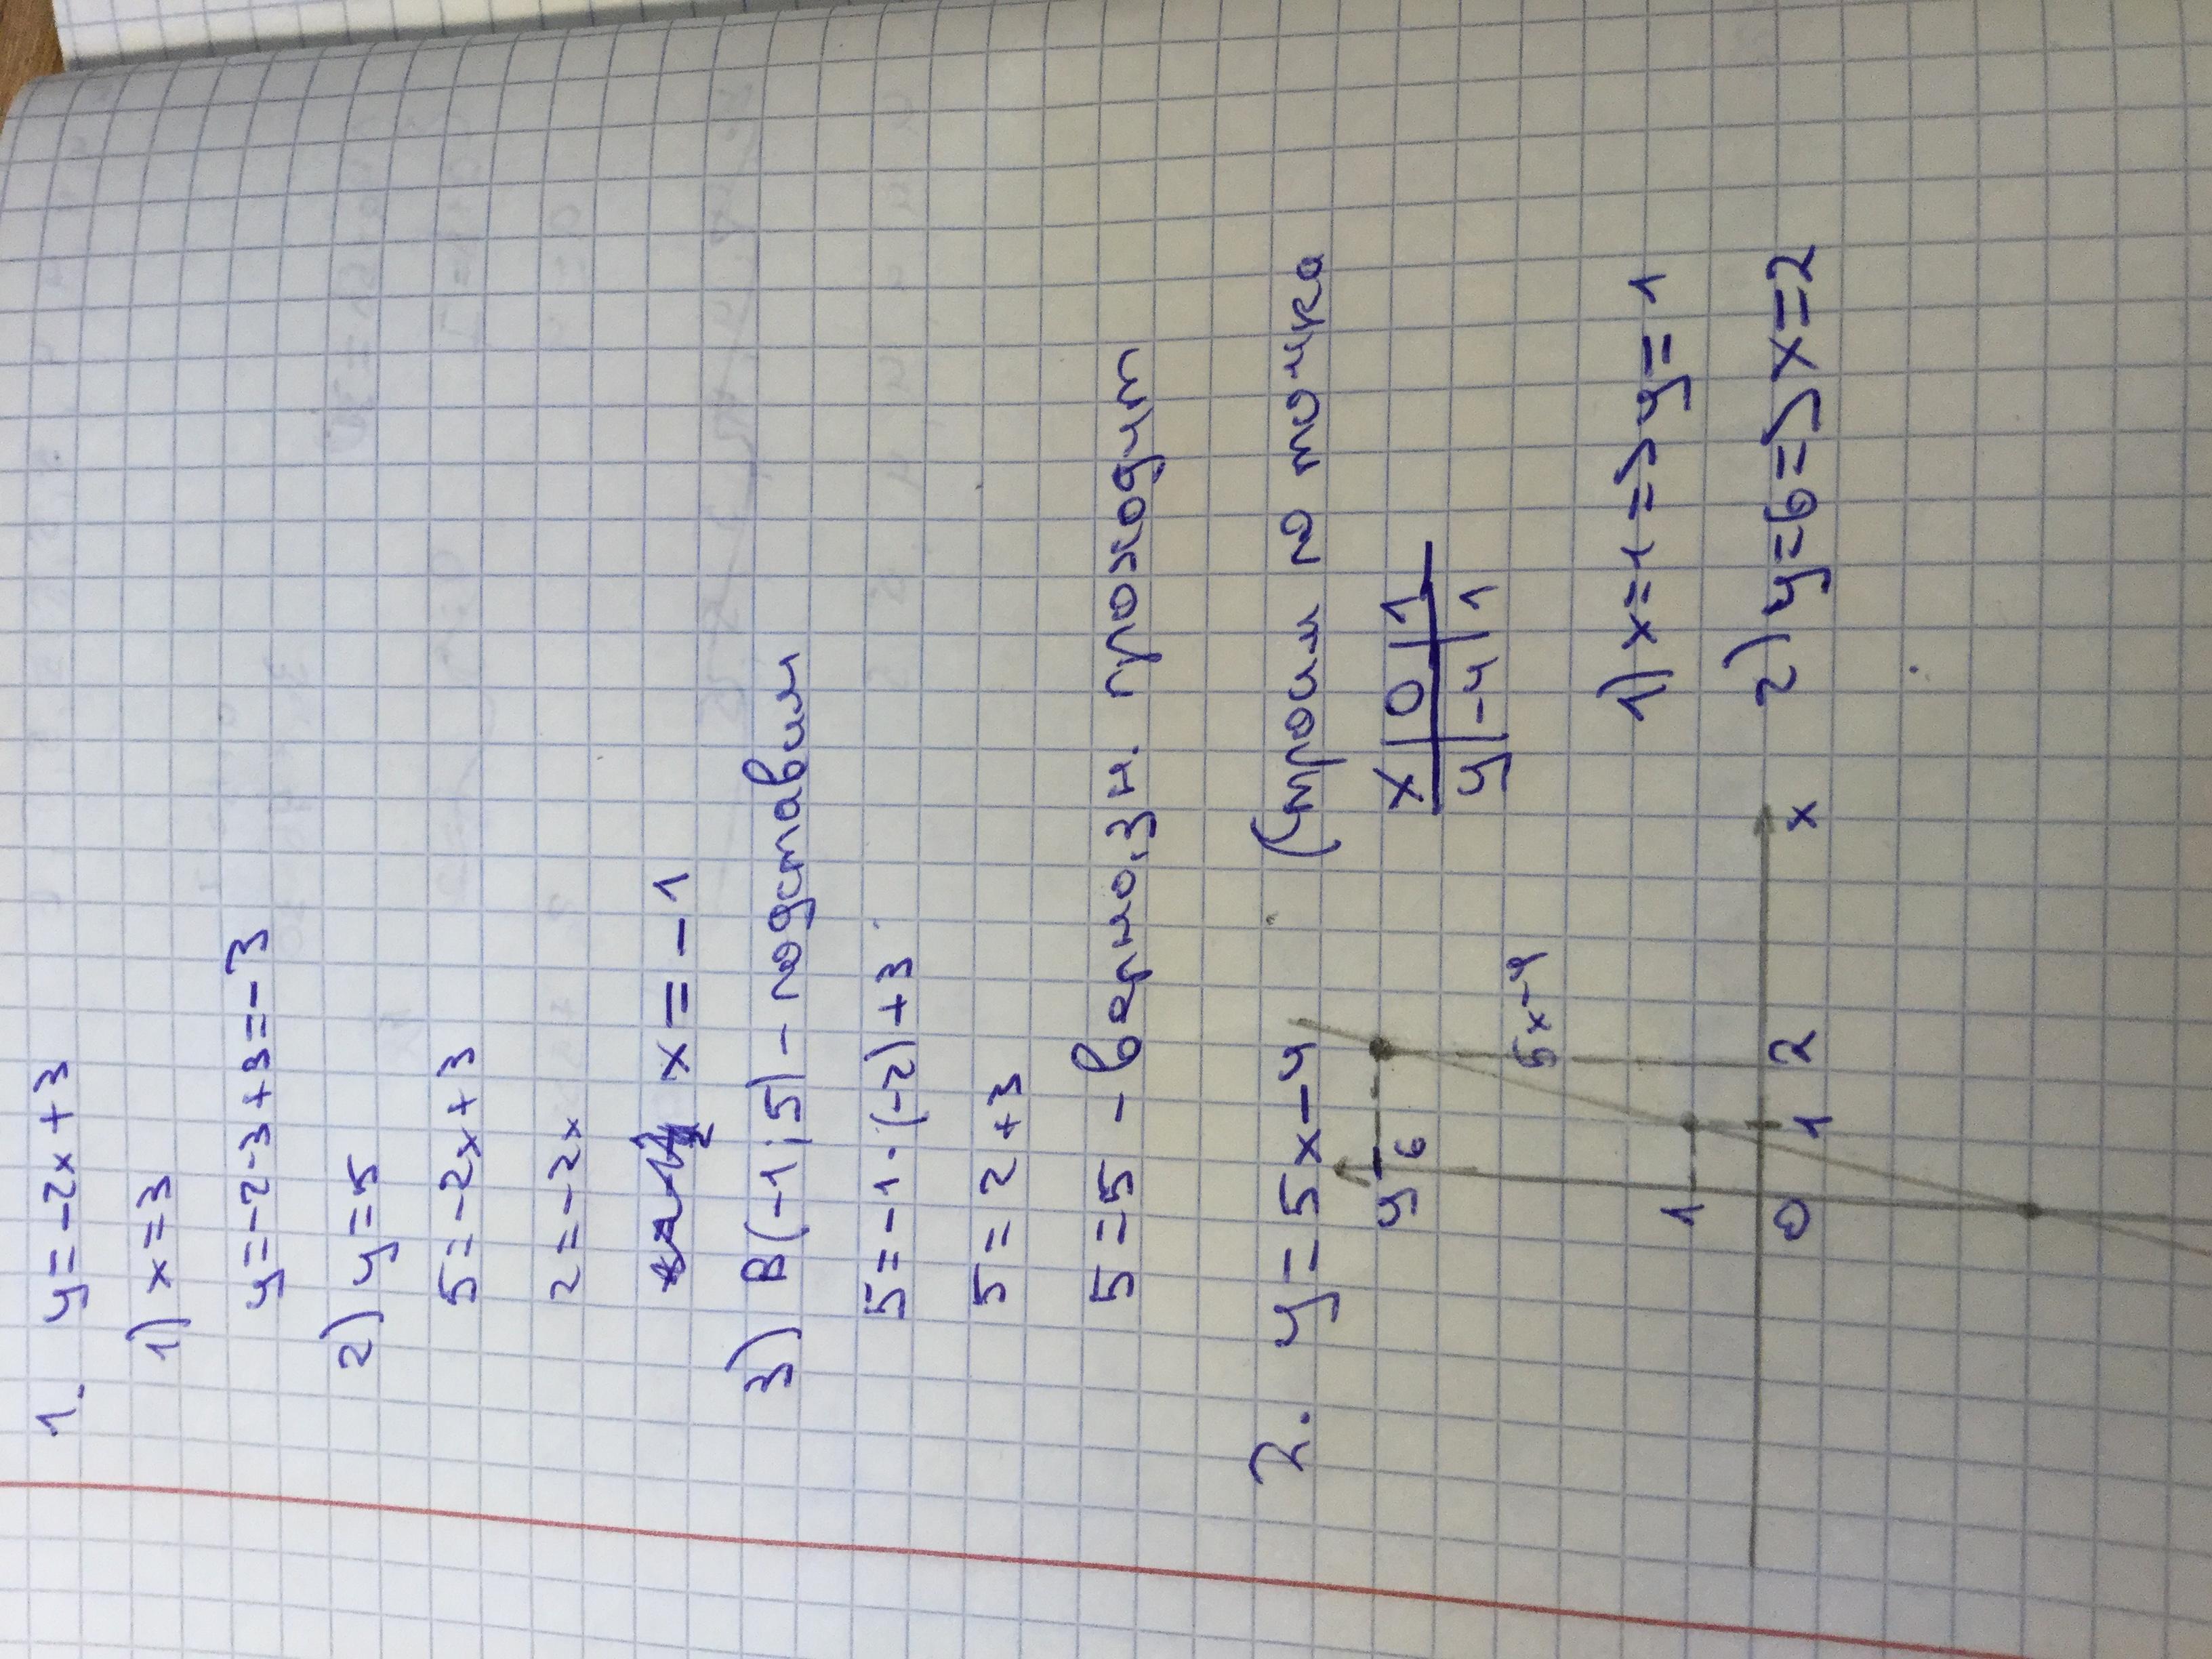 1. y=-2x+3
1) x=3
y=-2·3+3=-3
2) y=5
5=-2x+3
2=-2x
x=-1
3) B(-1;5) - подставим
5=-1·(-2)+3
5=2+3
5=5 - верно, зн. проходит
2. y=5x-4 (троим по точка
x|0|1
y|-4|1
1) x=1=>y=1
2) y=6=>x=2
y
6
5x-4
1
0 1 2 x